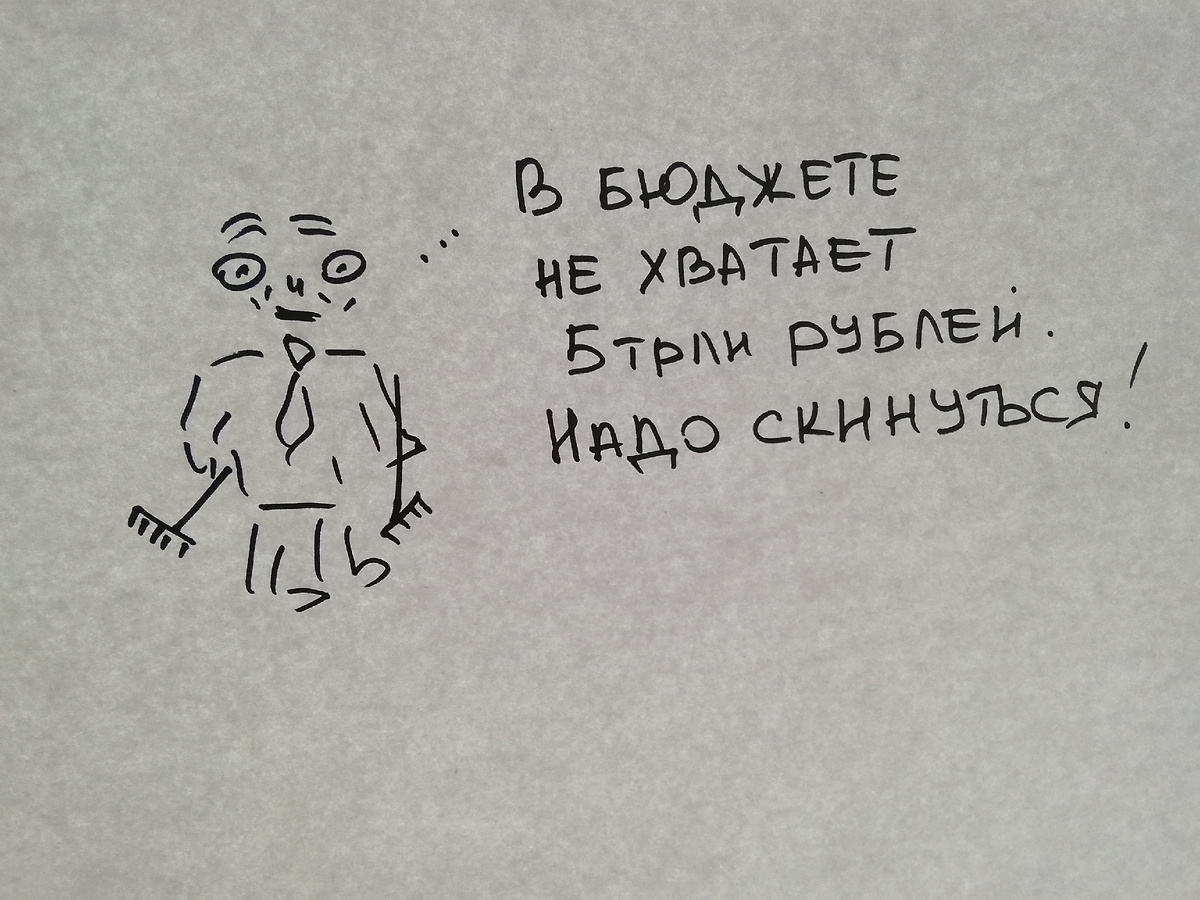 В БЮДЖЕТЕ
НЕ ХВАТАЕТ
5трлн РУБЛЕЙ.
НАДО СКИНУТЬСЯ!